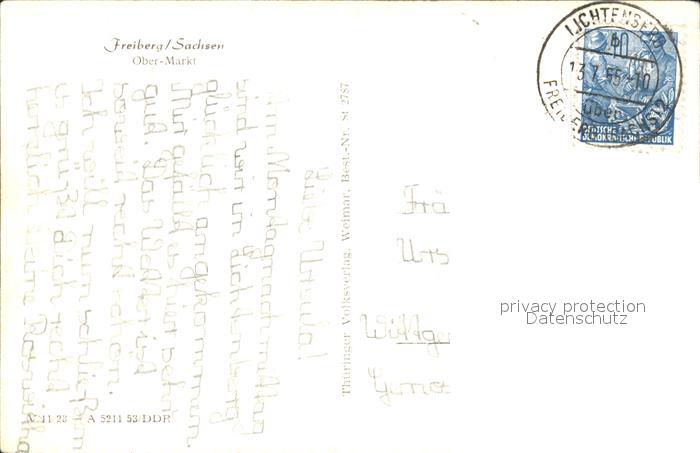 Freiberg/Sachsen
Ober-Markt
Liebe Ursula!
Am Montagnachmittag
sind wir in Lichtenberg
glücklich angekommen.
Mir gefällt es hier sehr
gut. Das Wetter ist
recht schön.
Ich will nun schließen
u. grüße Dich recht
herzlich Deine
V 11 28 A 5211 53/DDR
Thüringer Volksverlag, Weimar, Best.-Nr. st 2787
LICHTENBERG
b
13.7.55-10
über
FREIBERG (SACHS)
10
DEUTSCHE
DEMOKRATISCHE REPUBLIK
Frä
Urs
Wittge
privacy protection
Datenschutz